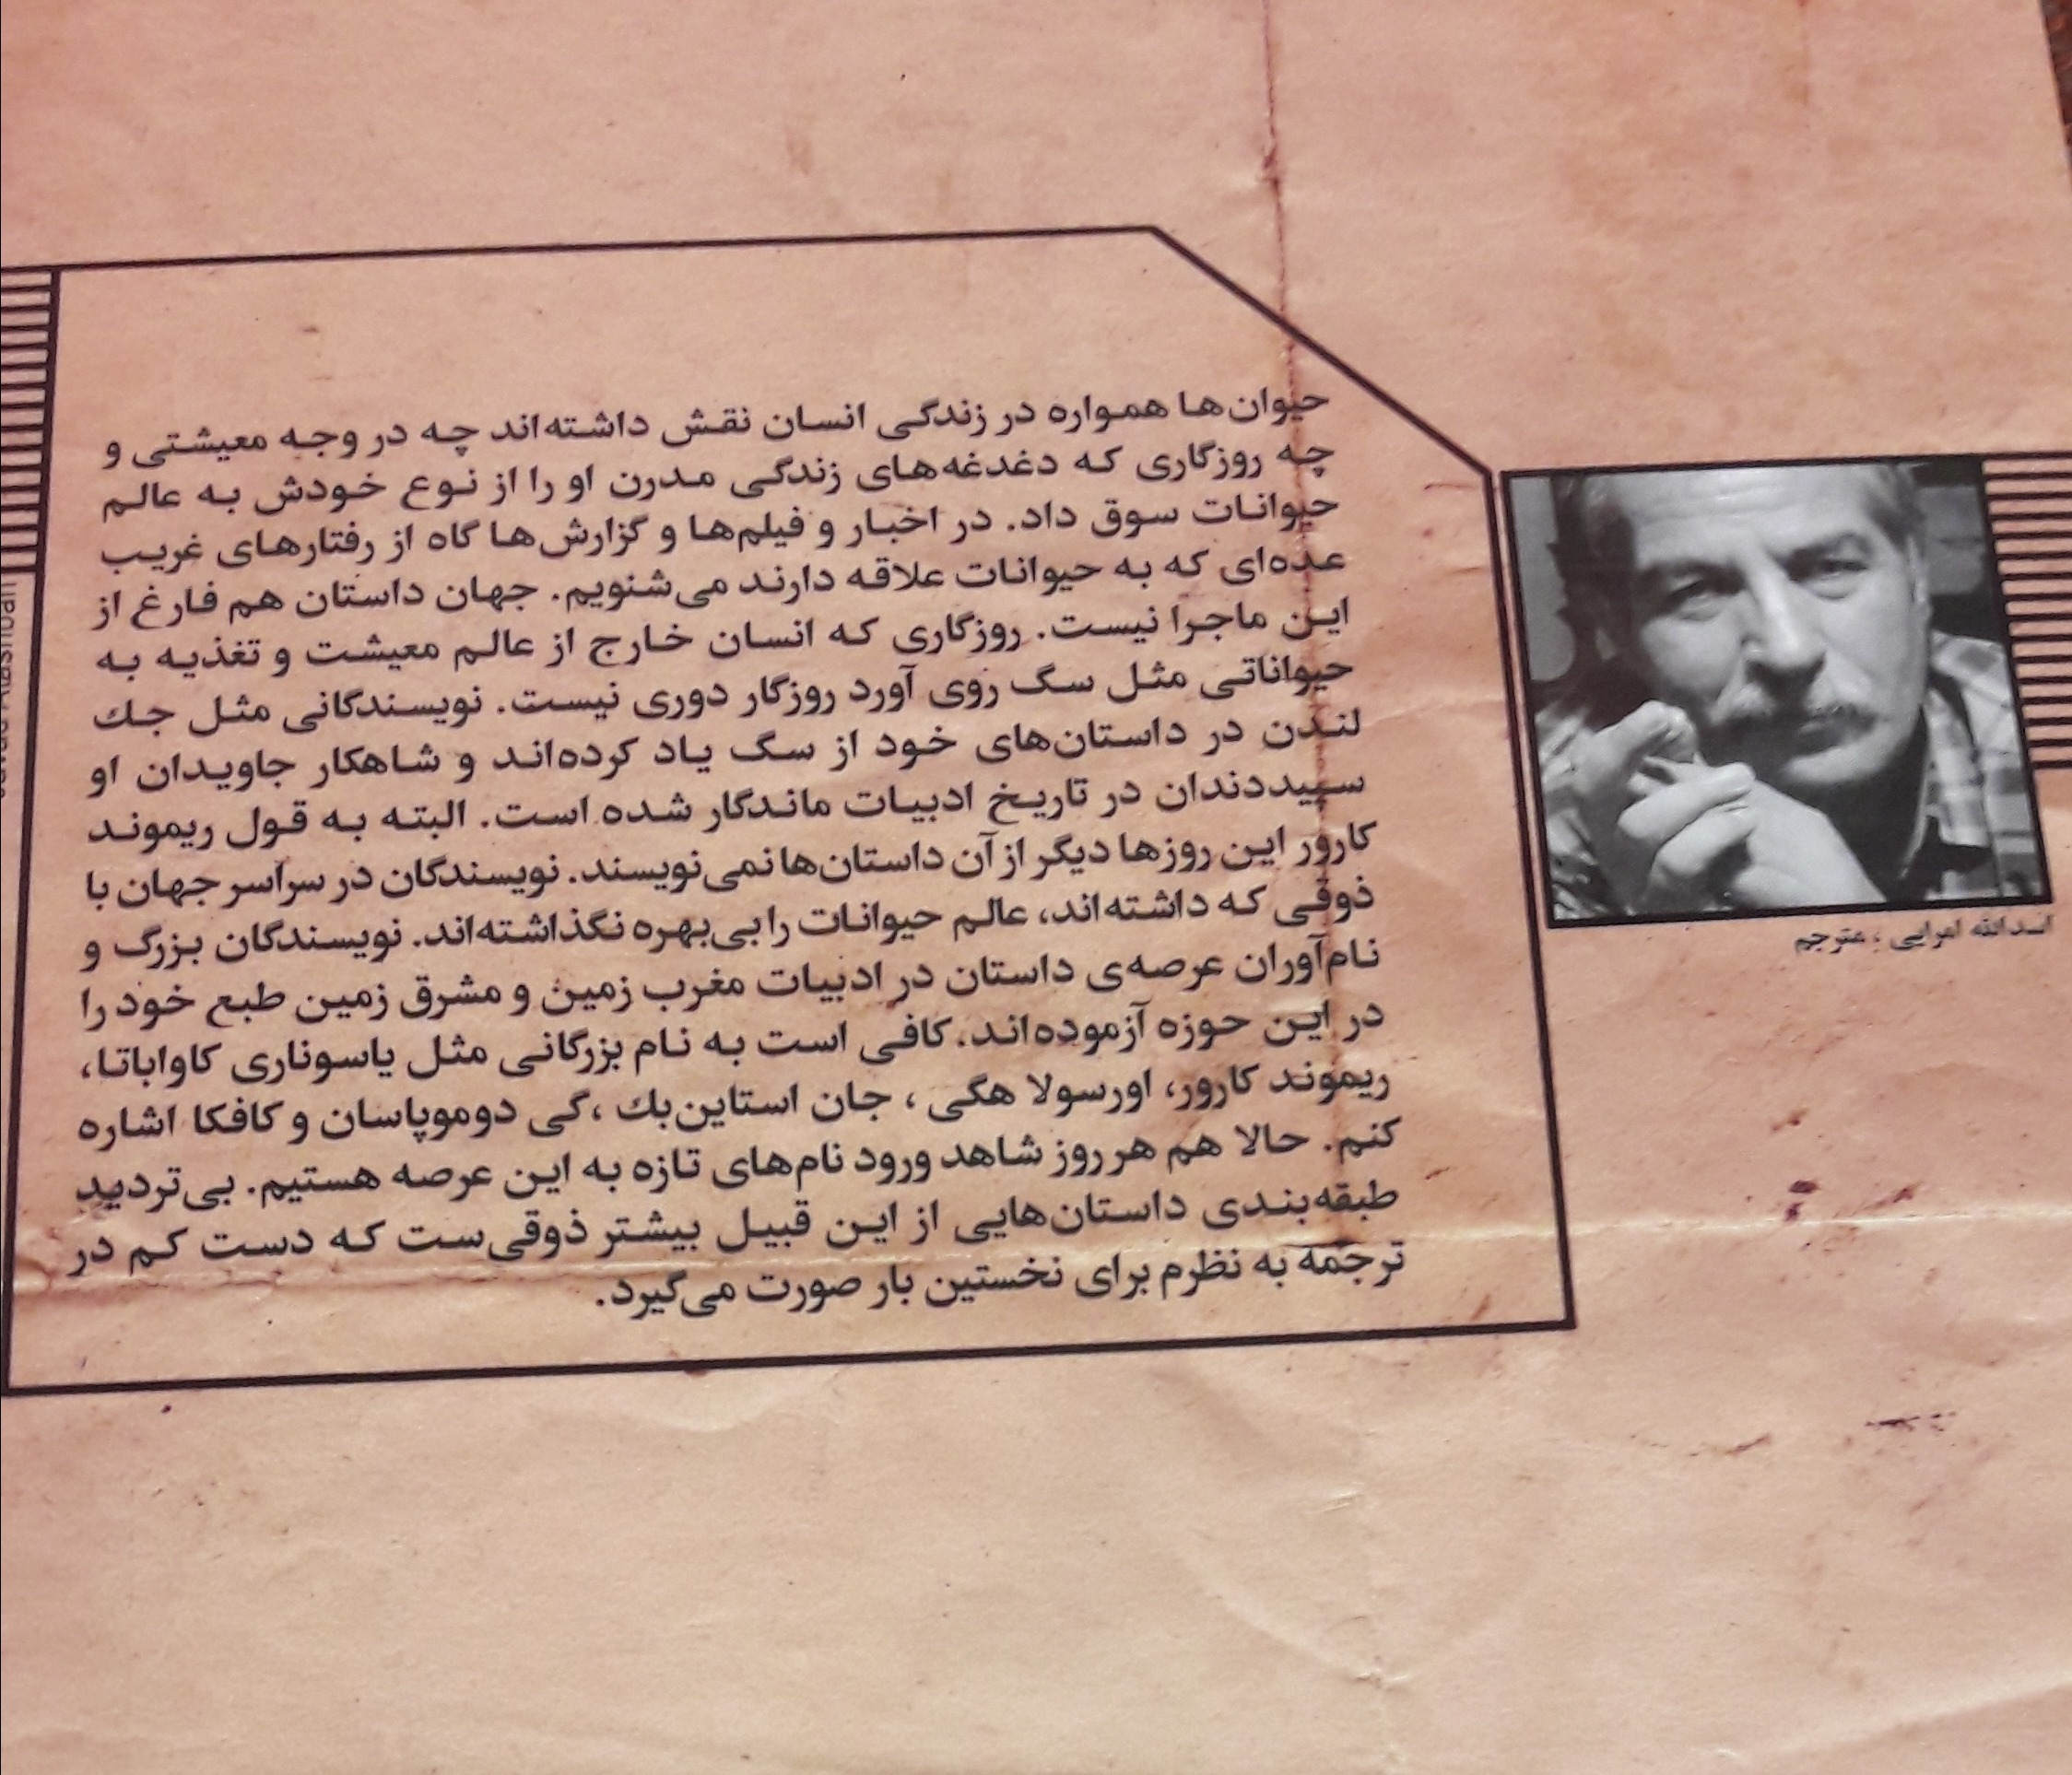 حیوان‌ها همواره در زندگی انسان نقش داشته‌اند چه در وجه معیشتی و
چه روزگاری که دغدغه‌های زندگی مدرن او را از نوع خودش به عالم
حیوانات سوق داد. در اخبار و فیلم‌ها و گزارش‌ها گاه از رفتارهای غریب
عده‌ای که به حیوانات علاقه دارند می‌شنویم. جهان داستان هم فارغ از
این ماجرا نیست. روزگاری که انسان خارج از عالم معیشت و تغذیه به
حیواناتی مثل سگ روی آورد روزگار دوری نیست. نویسندگانی مثل جك
لندن در داستان‌های خود از سگ یاد کرده‌اند و شاهکار جاویدان او
سپیددندان در تاریخ ادبیات ماندگار شده است. البته به قول ریموند
کارور این روزها دیگر از آن داستان‌ها نمی‌نویسند. نویسندگان در سراسر جهان با
ذوقی که داشته‌اند، عالم حیوانات را بی‌بهره نگذاشته‌اند. نویسندگان بزرگ و
نام‌آوران عرصه‌ی داستان در ادبیات مغرب زمین و مشرق زمین طبع خود را
در این حوزه آزموده‌اند. کافی است به نام بزرگانی مثل یاسوناری کاواباتا،
ریموند کارور، اورسولا هگی ، جان استاین‌بك ،گی دوموپاسان و کافکا اشاره
کنم. حالا هم هر روز شاهد ورود نام‌های تازه به این عرصه هستیم. بی‌تردید
طبقه‌بندی داستان‌هایی از این قبیل بیشتر ذوقی‌ست که دست کم در
ترجمه به نظرم برای نخستین بار صورت می‌گیرد.
اسدالله امرایی ، مترجم